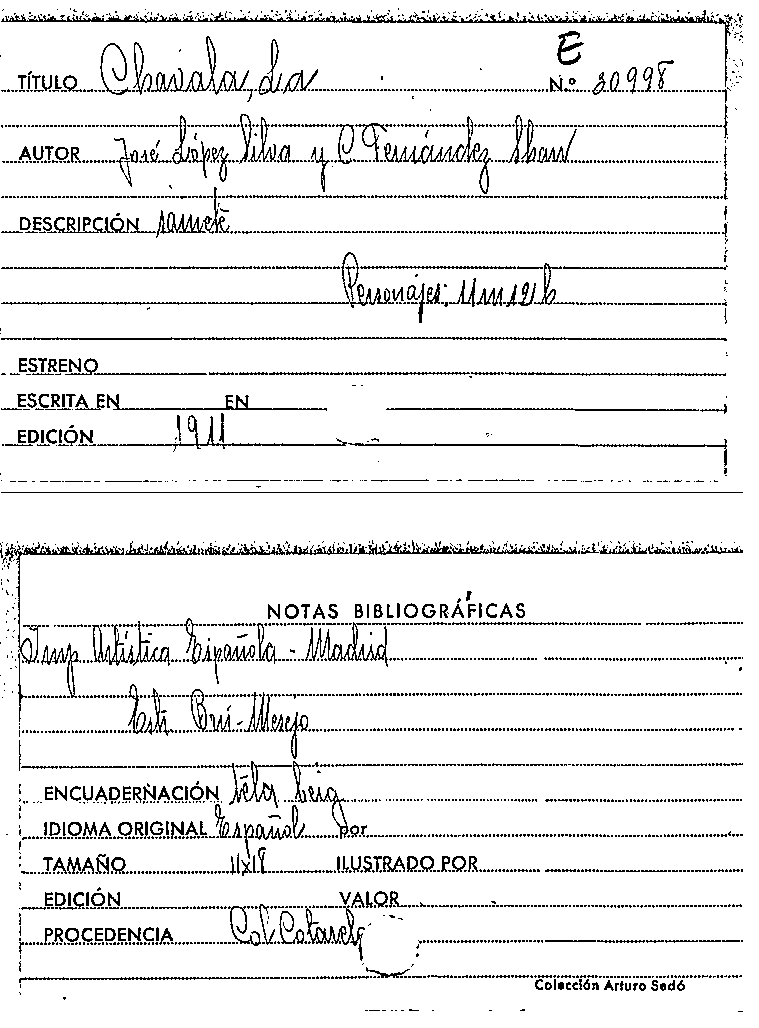 E
TÍTULO Chavala, La N.º 30998
AUTOR José López Silva y C. Fernández Shaw
DESCRIPCIÓN sainete
Personajes: 11 m 12 h
ESTRENO
ESCRITA EN EN
EDICIÓN 1911
NOTAS BIBLIOGRÁFICAS
Imp Artística Española - Madrid
Brú - Mesejo
ENCUADERNACIÓN tela beig
IDIOMA ORIGINAL Español por
TAMAÑO 11x18 ILUSTRADO POR
EDICIÓN VALOR
PROCEDENCIA Col. Cotarelo
Colección Arturo Sedó